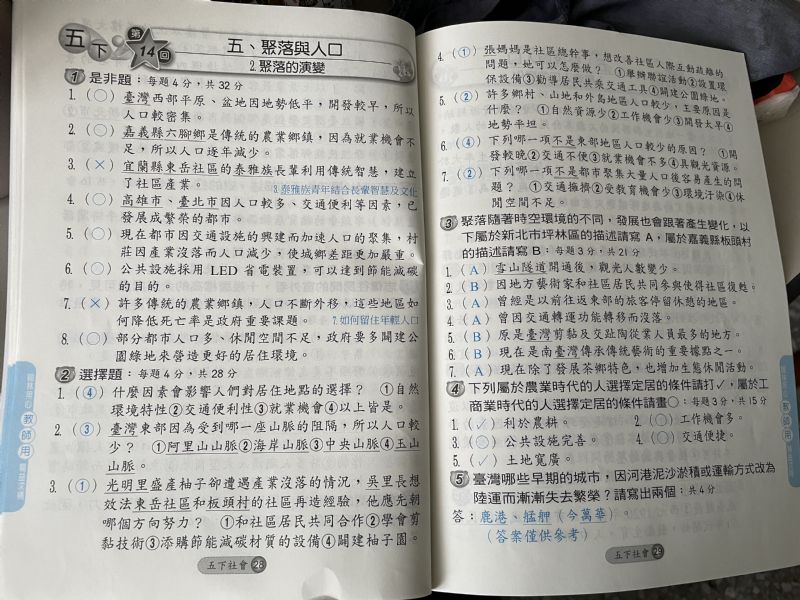 五下 第14回 五、聚落與人口
2.聚落的演變
1 是非題：每題4分，共32分
1.（○）臺灣西部平原、盆地因地勢低平，開發較早，所以
人口較密集。
2.（○）嘉義縣六腳鄉是傳統的農業鄉鎮，因為就業機會不
足，所以人口逐年減少。
3.（×）宜蘭縣東岳社區的泰雅族長輩利用傳統智慧，建立
了社區產業。
3.泰雅族青年結合長輩智慧及文化
4.（○）高雄市、臺北市因人口較多、交通便利等因素，已
發展成繁榮的都市。
5.（○）現在都市因交通設施的興建而加速人口的聚集，村
莊因產業沒落而人口減少，使城鄉差距更加嚴重。
6.（○）公共設施採用 LED 省電裝置，可以達到節能減碳
的目的。
7.（×）許多傳統的農業鄉鎮，人口不斷外移，這些地區如
何降低死亡率是政府重要課題。
7.如何留住年輕人口
8.（○）部分都市人口多、休閒空間不足，政府要多關建公
園綠地來營造更好的居住環境。
2 選擇題：每題4分，共28分
1.（④）什麼因素會影響人們對居住地點的選擇？ ①自然
環境特性②交通便利性③就業機會④以上皆是。
2.（③）臺灣東部因為受到哪一座山脈的阻隔，所以人口較
少？ ①阿里山山脈②海岸山脈③中央山脈④玉山
山脈。
3.（①）光明里盛產柚子卻遭遇產業沒落的情況，吳里長想
效法東岳社區和板頭村的社區再造經驗，他應先朝
哪個方向努力？ ①和社區居民共同合作②學會剪
黏技術③添購節能減碳材質的設備④闢建柚子園。
五下社會 28
4.（①）張媽媽是社區總幹事，想改善社區人際互動疏離的
問題，她可以怎麼做？ ①舉辦聯誼活動②設置環
保設備③勸導居民共乘交通工具④關建公園綠地。
5.（②）許多鄉村、山地和外島地區人口較少，主要原因是
什麼？ ①自然資源少②工作機會少③開發太早④
地勢平坦。
6.（④）下列哪一項不是東部地區人口較少的原因？ ①開
發較晚②交通不便③就業機會不多④具觀光資源。
7.（②）下列哪一項不是都市聚集大量人口後容易產生的問
題？ ①交通擁擠②受教育機會少③環境汙染④休
閒空間不足。
3 聚落隨著時空環境的不同，發展也會跟著產生變化，以
下屬於新北市坪林區的描述請寫 A，屬於嘉義縣板頭村
的描述請寫 B：每題3分，共21分
1.（A）雪山隧道開通後，觀光人數變少。
2.（B）因地方藝術家和社區居民共同參與使得社區復甦。
3.（A）曾經是以前往返東部的旅客停留休憩的地區。
4.（A）曾因交通轉運功能轉移而沒落。
5.（B）原是臺灣剪黏及交趾陶從業人員最多的地方。
6.（B）現在是南臺灣傳承傳統藝術的重要據點之一。
7.（A）現在除了發展茶鄉特色，也增加生態休閒活動。
4 下列屬於農業時代的人選擇定居的條件請打✓，屬於工
商業時代的人選擇定居的條件請畫○：每題3分，共15分
1.（✓）利於農耕。 2.（○）工作機會多。
3.（○）公共設施完善。 4.（○）交通便捷。
5.（✓）土地寬廣。
5 臺灣哪些早期的城市，因河港泥沙淤積或運輸方式改為
陸運而漸漸失去繁榮？請寫出兩個：共4分
答：鹿港、艋舺（今萬華）。
（答案僅供參考）
五下社會 29
教師用